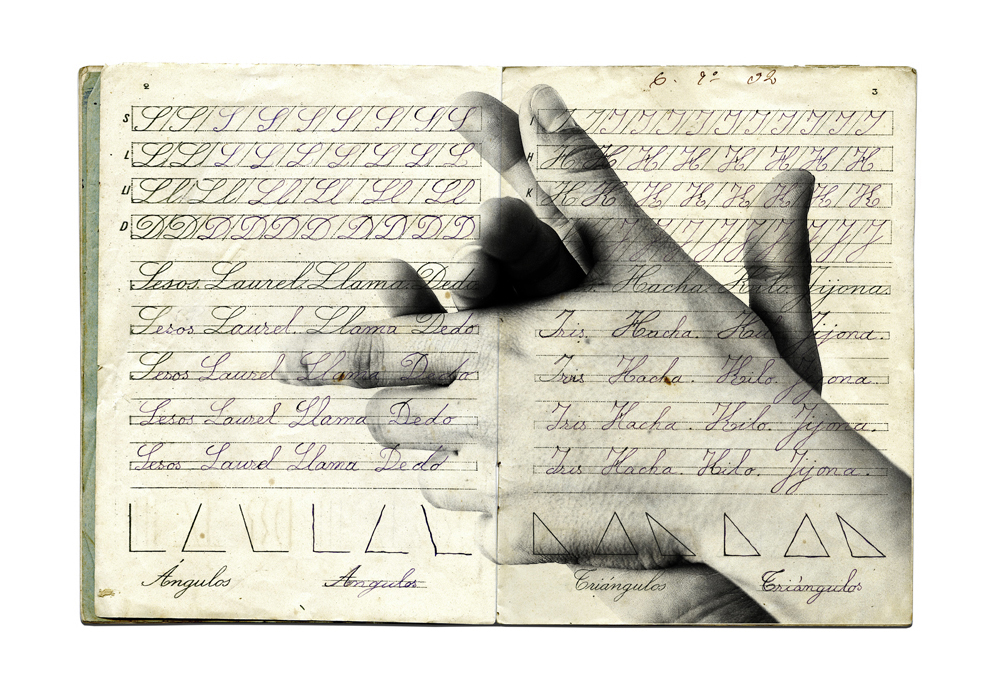 2
S S S S S S S S S S
L L L L L L L L L L
Ll Ll Ll Ll Ll Ll Ll
D D D D D D D D D D D
Sesos Laurel. Llama Dedo
Sesos Laurel. Llama Dedo
Sesos Laurel Llama Dedo
Sesos Laurel Llama Dedo
Sesos Laurel Llama Dedo
Ángulos Angulos
3
I I I I I I I I I I
H H H H H H H H H
K K K K K K K K
J J J J J J J J
Hacha. Kilo. Jijona.
Iris. Hacha. Kilo. Jijona.
Iris Hacha. Kilo. Jijona.
Iris Hacha. Kilo. Jijona.
Iris Hacha. Kilo. Jijona.
Triángulos Triángulos